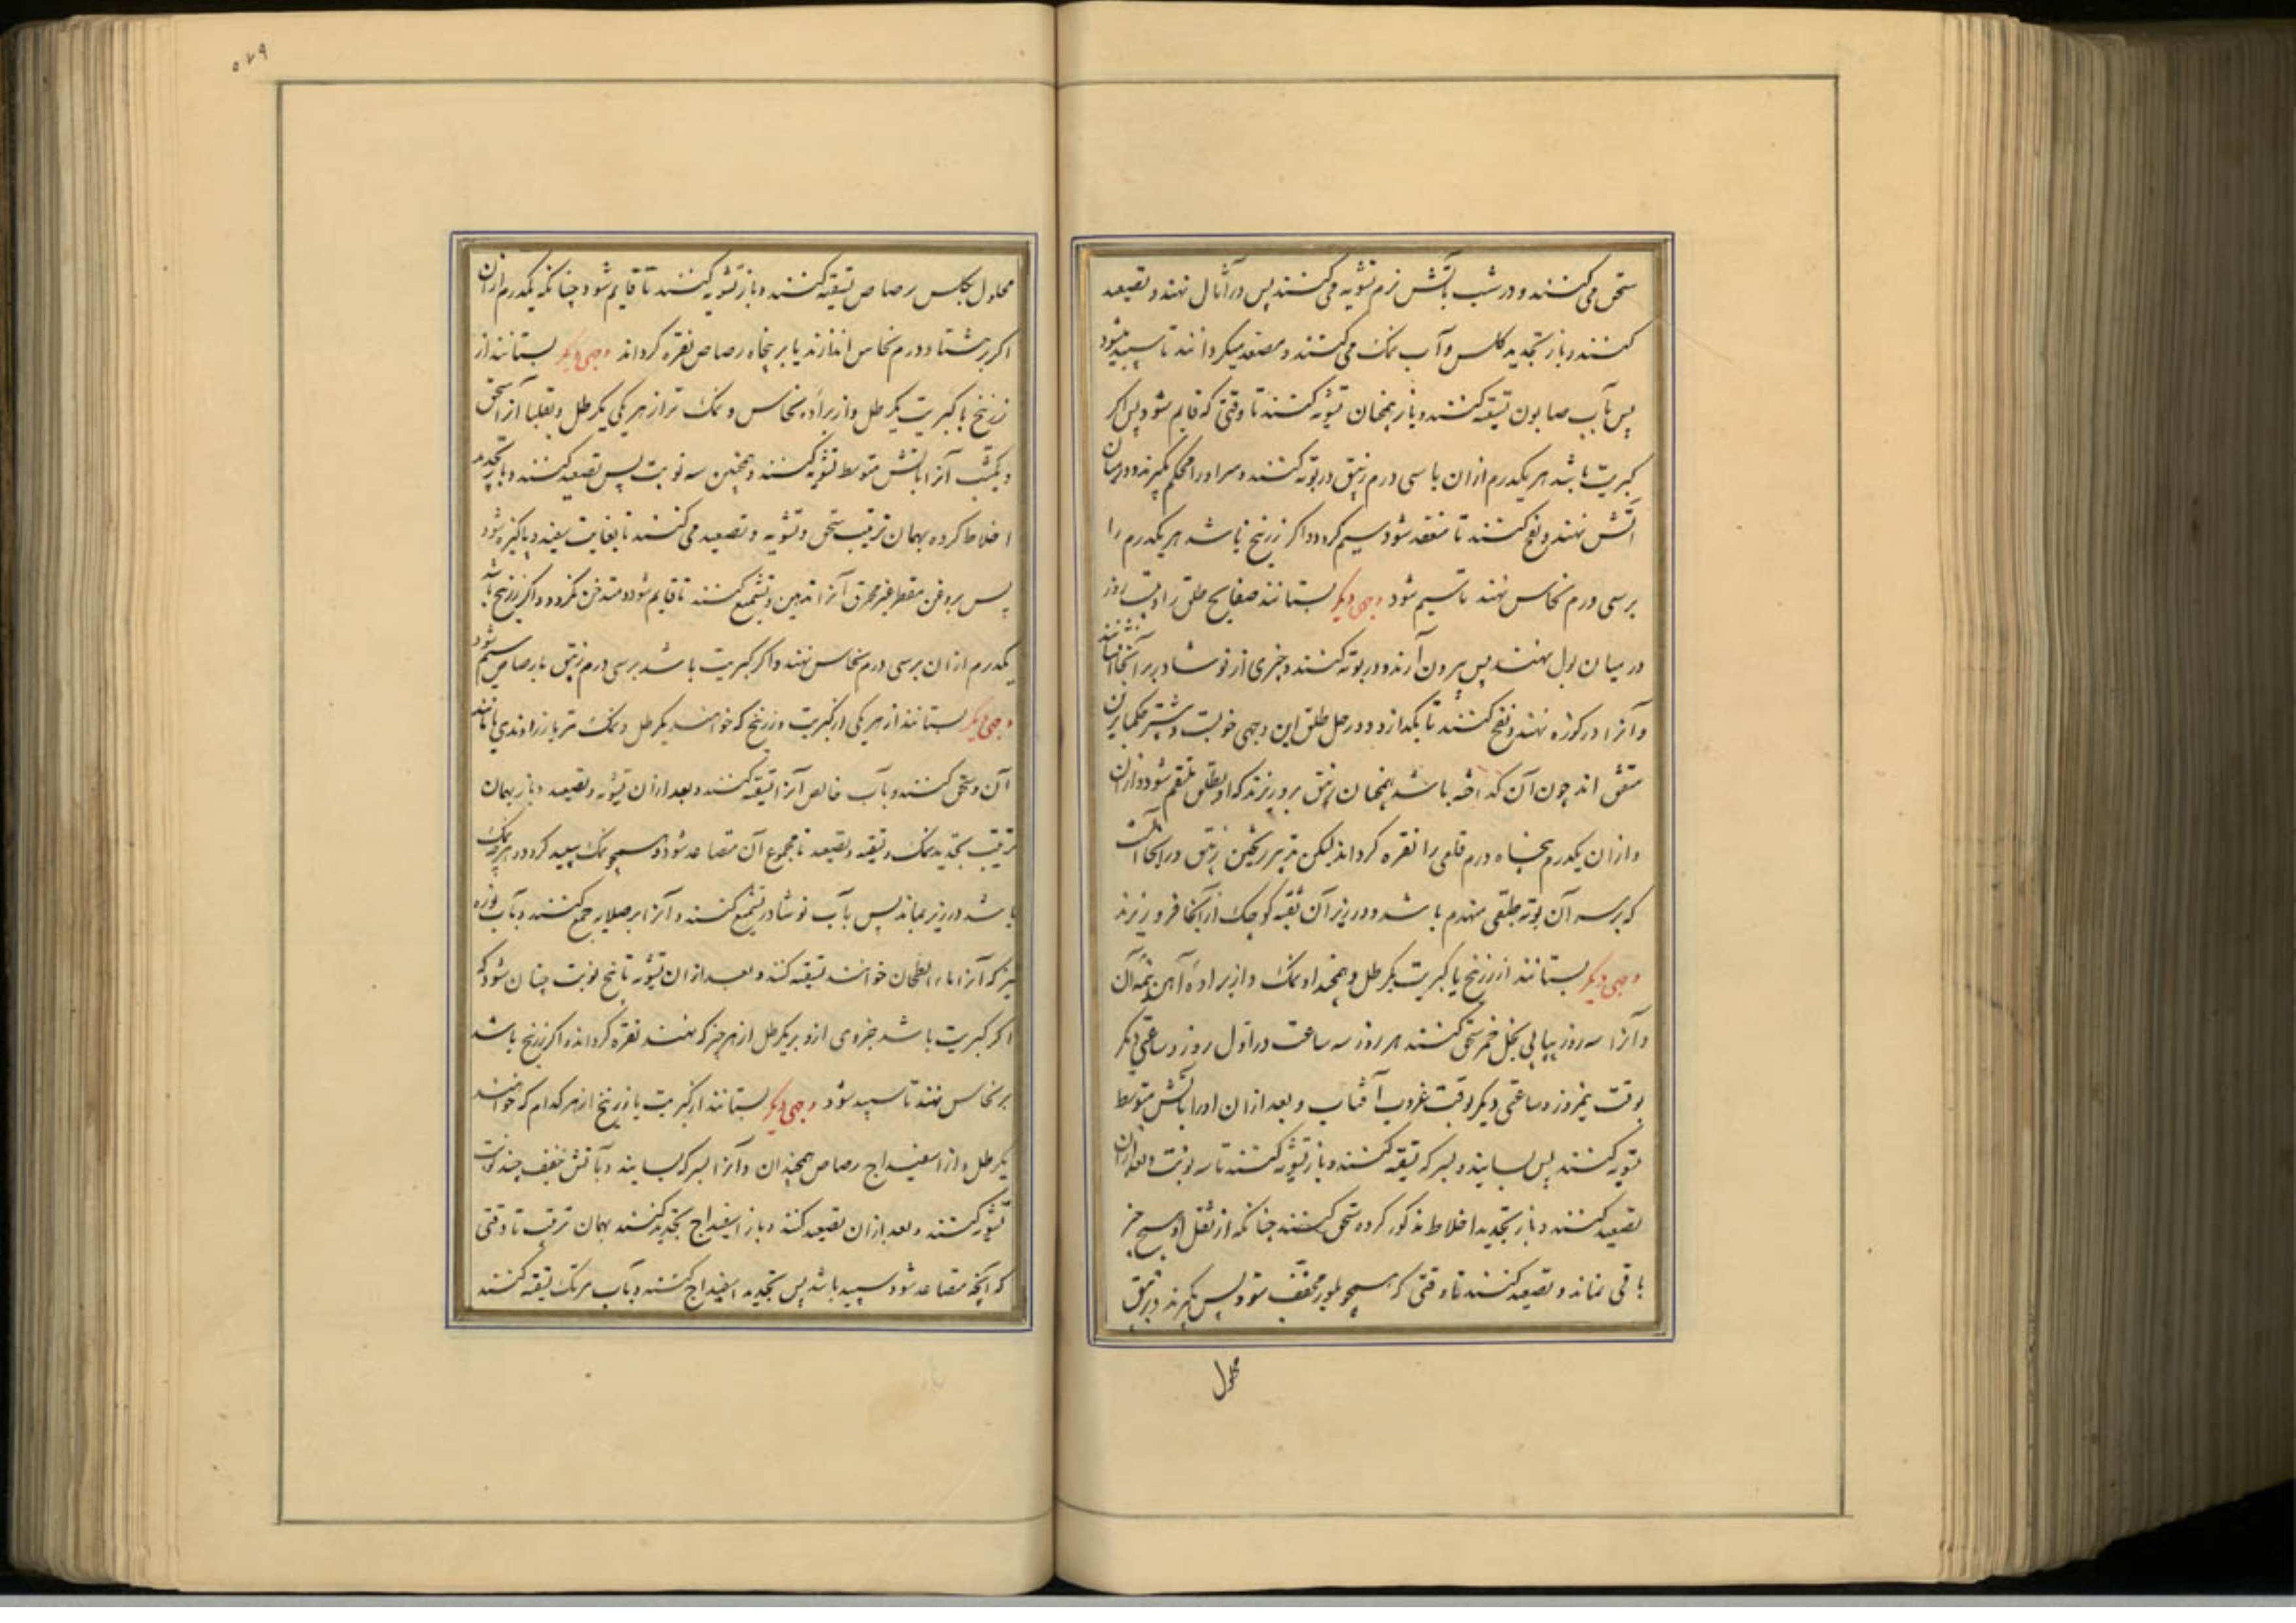 سحق می کنند و در شب بآتش نرم تشویه می کنند پس در آثال نهند و تصعید
کنند و باز تجدید کلس و آب نمک می کنند و مصعد میکردانند تا سپید شود
پس بآب صابون تسقیه کنند و باز همچنان تشویه کنند تا وقتی که قایم شود پس اکر
کبریت باشد هر یکدرم ازان با سی درم زیبق در بوته کنند و سر او را محکم کیرند و در میان
آتش نهند و نفخ کنند تا منعقد شود و سیم کردد و اکر زرنیخ باشد هر یکدرم را
بر سی درم نحاس نهند تا سیم شود وجهی دیکر بستانند صفایح طلق را و بیست روز
در میان بول نهند پس بیرون آرند و در بوته کنند و چیزی از نوشادر بر آنجا افشانند
و آنرا در کوزه نهند و نفخ کنند تا بکدازد و در حل طلق این وجهی خوبست و بیشتر حکما برین
متفق اند چون آن کداخته باشد همچنان زیبق برو ریزند که او بطلق ملتقم شود و ازان
و ازان یکدرم پنجاه درم قلعی را نقره کرداند لیکن تدبیر ریختن زیبق در آنجا آنست
که بر سر آن بوته طبقی منهدم باشد و در زیر آن ثقبه کوچک از آنجا فرو ریزند
وجهی دیکر بستانند از زرنیخ یا کبریت یکرطل و همچنداو نمک و از براده آهن نیمه آن
و آنرا سه روز پیاپی بخل خمر سحق کنند هر روز سه ساعت در اول روز و ساعتی دیکر
بوقت نیمروز و ساعتی دیکر بوقت غروب آفتاب و بعد ازان او را بآتش متوسط
تشویه کنند پس بسایند و بسرکه تسقیه کنند و باز تشویه کنند تا سه نوبت و بعد ازان
تصعید کنند و باز تجدید اخلاط مذکور کرده سحق کنند چنانکه از ثقل او هیچ چیز
باقی نماند و تصعید کنند تا وقتی که همچو بلور مجفف شود پس بکیرند و بزیبق
محلول
۵۲۹
محلول بکلس رصاص تسقیه کنند و باز تشویه کنند تا قایم شود چنانکه یکدرم ازان
اکر بر هشتاد درم نحاس اندازند یا بر پنجاه رصاص نقره کرداند وجهی دیکر بستانند از
زرنیخ یا کبریت یکرطل و از براده نحاس و نمک تر از هر یکی یکرطل و بقلیا آنرا سحق
و یکشب آنرا بآتش متوسط تشویه کنند و همچنین سه نوبت پس تصعید کنند و باز تجدید
اخلاط کرده بهمان ترتیب سحق و تشویه و تصعید می کنند تا بغایت سفید و پاکیزه شود
پس بروغن مقطر غیر محرق آنرا تدهین و تشمیع کنند تا قایم شود و متدخن نکردد و اکر زرنیخ باشد
یکدرم ازان بر سی درم نحاس نهند و اکر کبریت باشد بر سی درم زیبق یا رصاص سیم شود
وجهی دیکر بستانند از هر یکی از کبریت و زرنیخ که خواهند یکرطل و نمک تر یا زراوندی مانند
آن و سحق کنند و بآب خالص آنرا تسقیه کنند و بعد ازان تشویه و تصعید و باز بهمان
ترتیب تجدید نمک و تسقیه و تصعید تا مجموع آن متصاعد شود و همچو نمک سپید کردد و هر چه نمک
باشد در زیر بماند پس بآب نوشادر تشمیع کنند و آنرا بر صلایه جمع کنند و بآب نوره
نیز که آنرا ماء الطحان خوانند تسقیه کنند و بعد ازان تشویه تا پنج نوبت چنان شود که
اکر کبریت باشد جزوی ازو بر یکرطل از هر چیز که نهند نقره کرداند و اکر زرنیخ باشد
بر نحاس نهند تا سپید شود وجهی دیکر بستانند از کبریت یا زرنیخ از هر کدام که خواهند
یکرطل و از اسفیداج رصاص همچندان و آنرا بسرکه بسایند و بآتش خفیف چند نوبت
تشویه کنند و بعد ازان تصعید کنند و باز اسفیداج تجدید کنند بهمان ترتیب تا وقتی
که آنچه متصاعد شود سپید باشد پس تجدید اسفیداج کنند و بآب مرتک تسقیه کنند